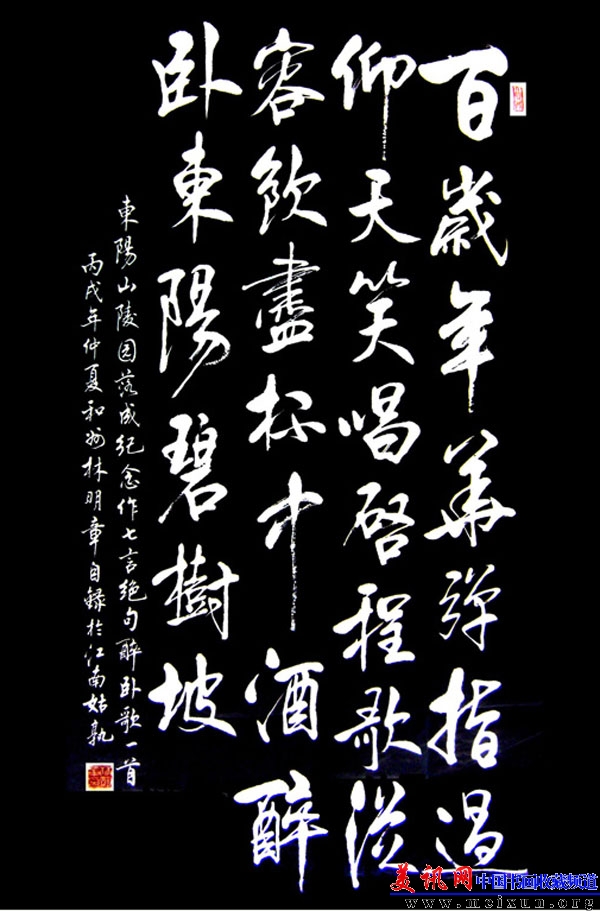 百歲年華彈指過
仰天笑唱啓程歌從
容飲盡杯中酒醉
卧東陽碧樹坡
東陽山陵园落成纪念作七言絕句醉卧歌一首
丙戌年仲夏和州林明章自録於江南姑孰
美讯网中国书画收藏频道
www.meixun.org